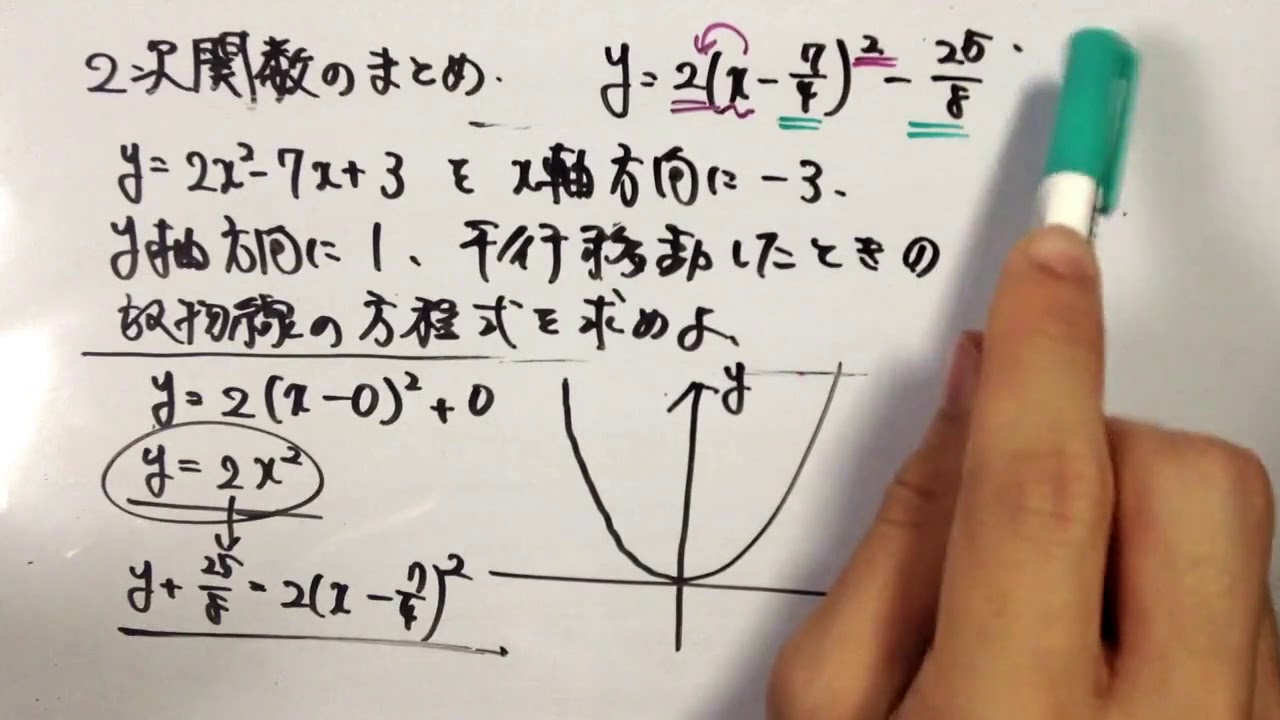 2次関数のまとめ.
y = 2(x - 7/4)² - 25/8
y = 2x² - 7x + 3 を x軸方向に -3、
y軸方向に 1、平行移動したときの
放物線の方程式を求めよ、
y = 2(x - 0)² + 0
y = 2x²
y + 25/8 = 2(x - 7/4)²
y